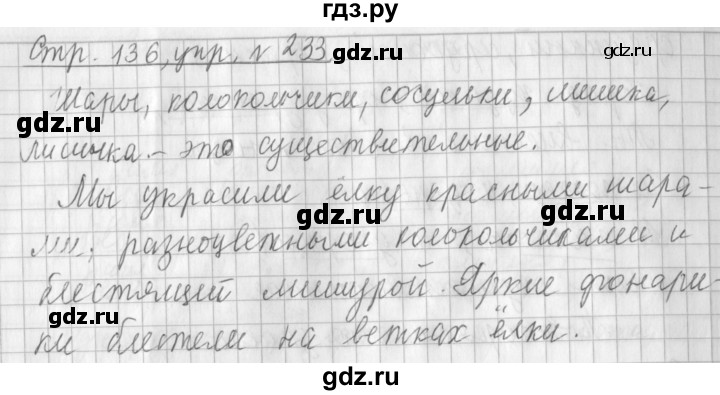 гдз.ру
Стр. 136, упр. № 233. gdz.ru
Шары, колокольчики, сосульки, мишка,
gdz.ru gdz.ru
лисичка – это существительные.
Мы украсили ёлку красными шара-
gdz.ru gdz.ru
ми, разноцветными колокольчиками и
блестящий мишурой. Яркие фонари-
gdz.ru gdz.ru
ки блестели на ветках ёлки.
gdz.ru